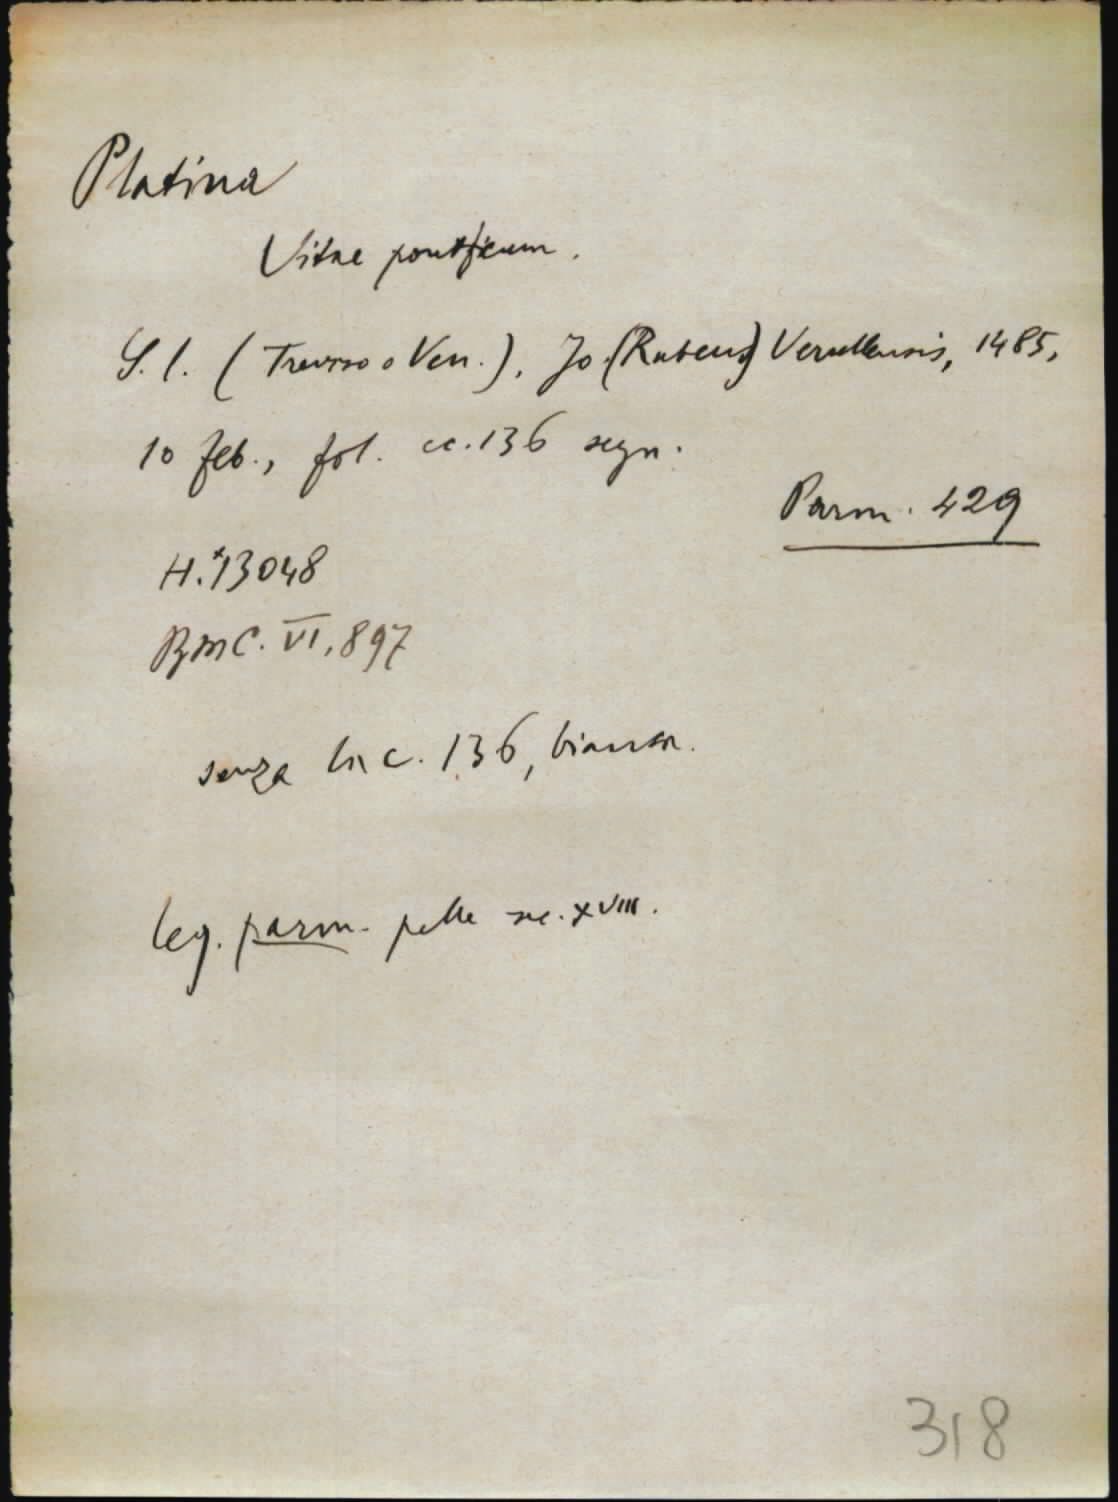 Platina
Vitae pontificum.
S. l. (Treviso o Ven.), Jo. (Rubeus) Vercellensis, 1485,
10 feb., fol. cc. 136 segn.
Parm. 429
H.*13048
BMC. VI, 897
senza la c. 136, bianca.
leg. parm. pelle sec. XVIII.
318